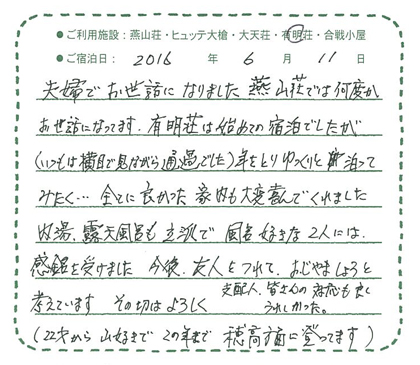 ●ご利用施設：燕山荘・ヒュッテ大槍・大天荘・有明荘・合戦小屋
●ご宿泊日：2016年6月11日
夫婦でお世話になりました 燕山荘では何度か
お世話になってます。有明荘は始めての宿泊でしたが
(いつもは横目で見ながら通過でした)年をとりゆっくりと 泊って
みたく… 全てに良かった 家内も大変喜んでくれました
内湯、露天風呂も立派で 風呂好きな2人には、
感銘を受けました 今後、友人をつれて、おじゃましようと
考えています その切はよろしく
支配人、皆さんの対応も良く
うれしかった。
(22才から 山好きで この年まで 穂高方面に登ってます)